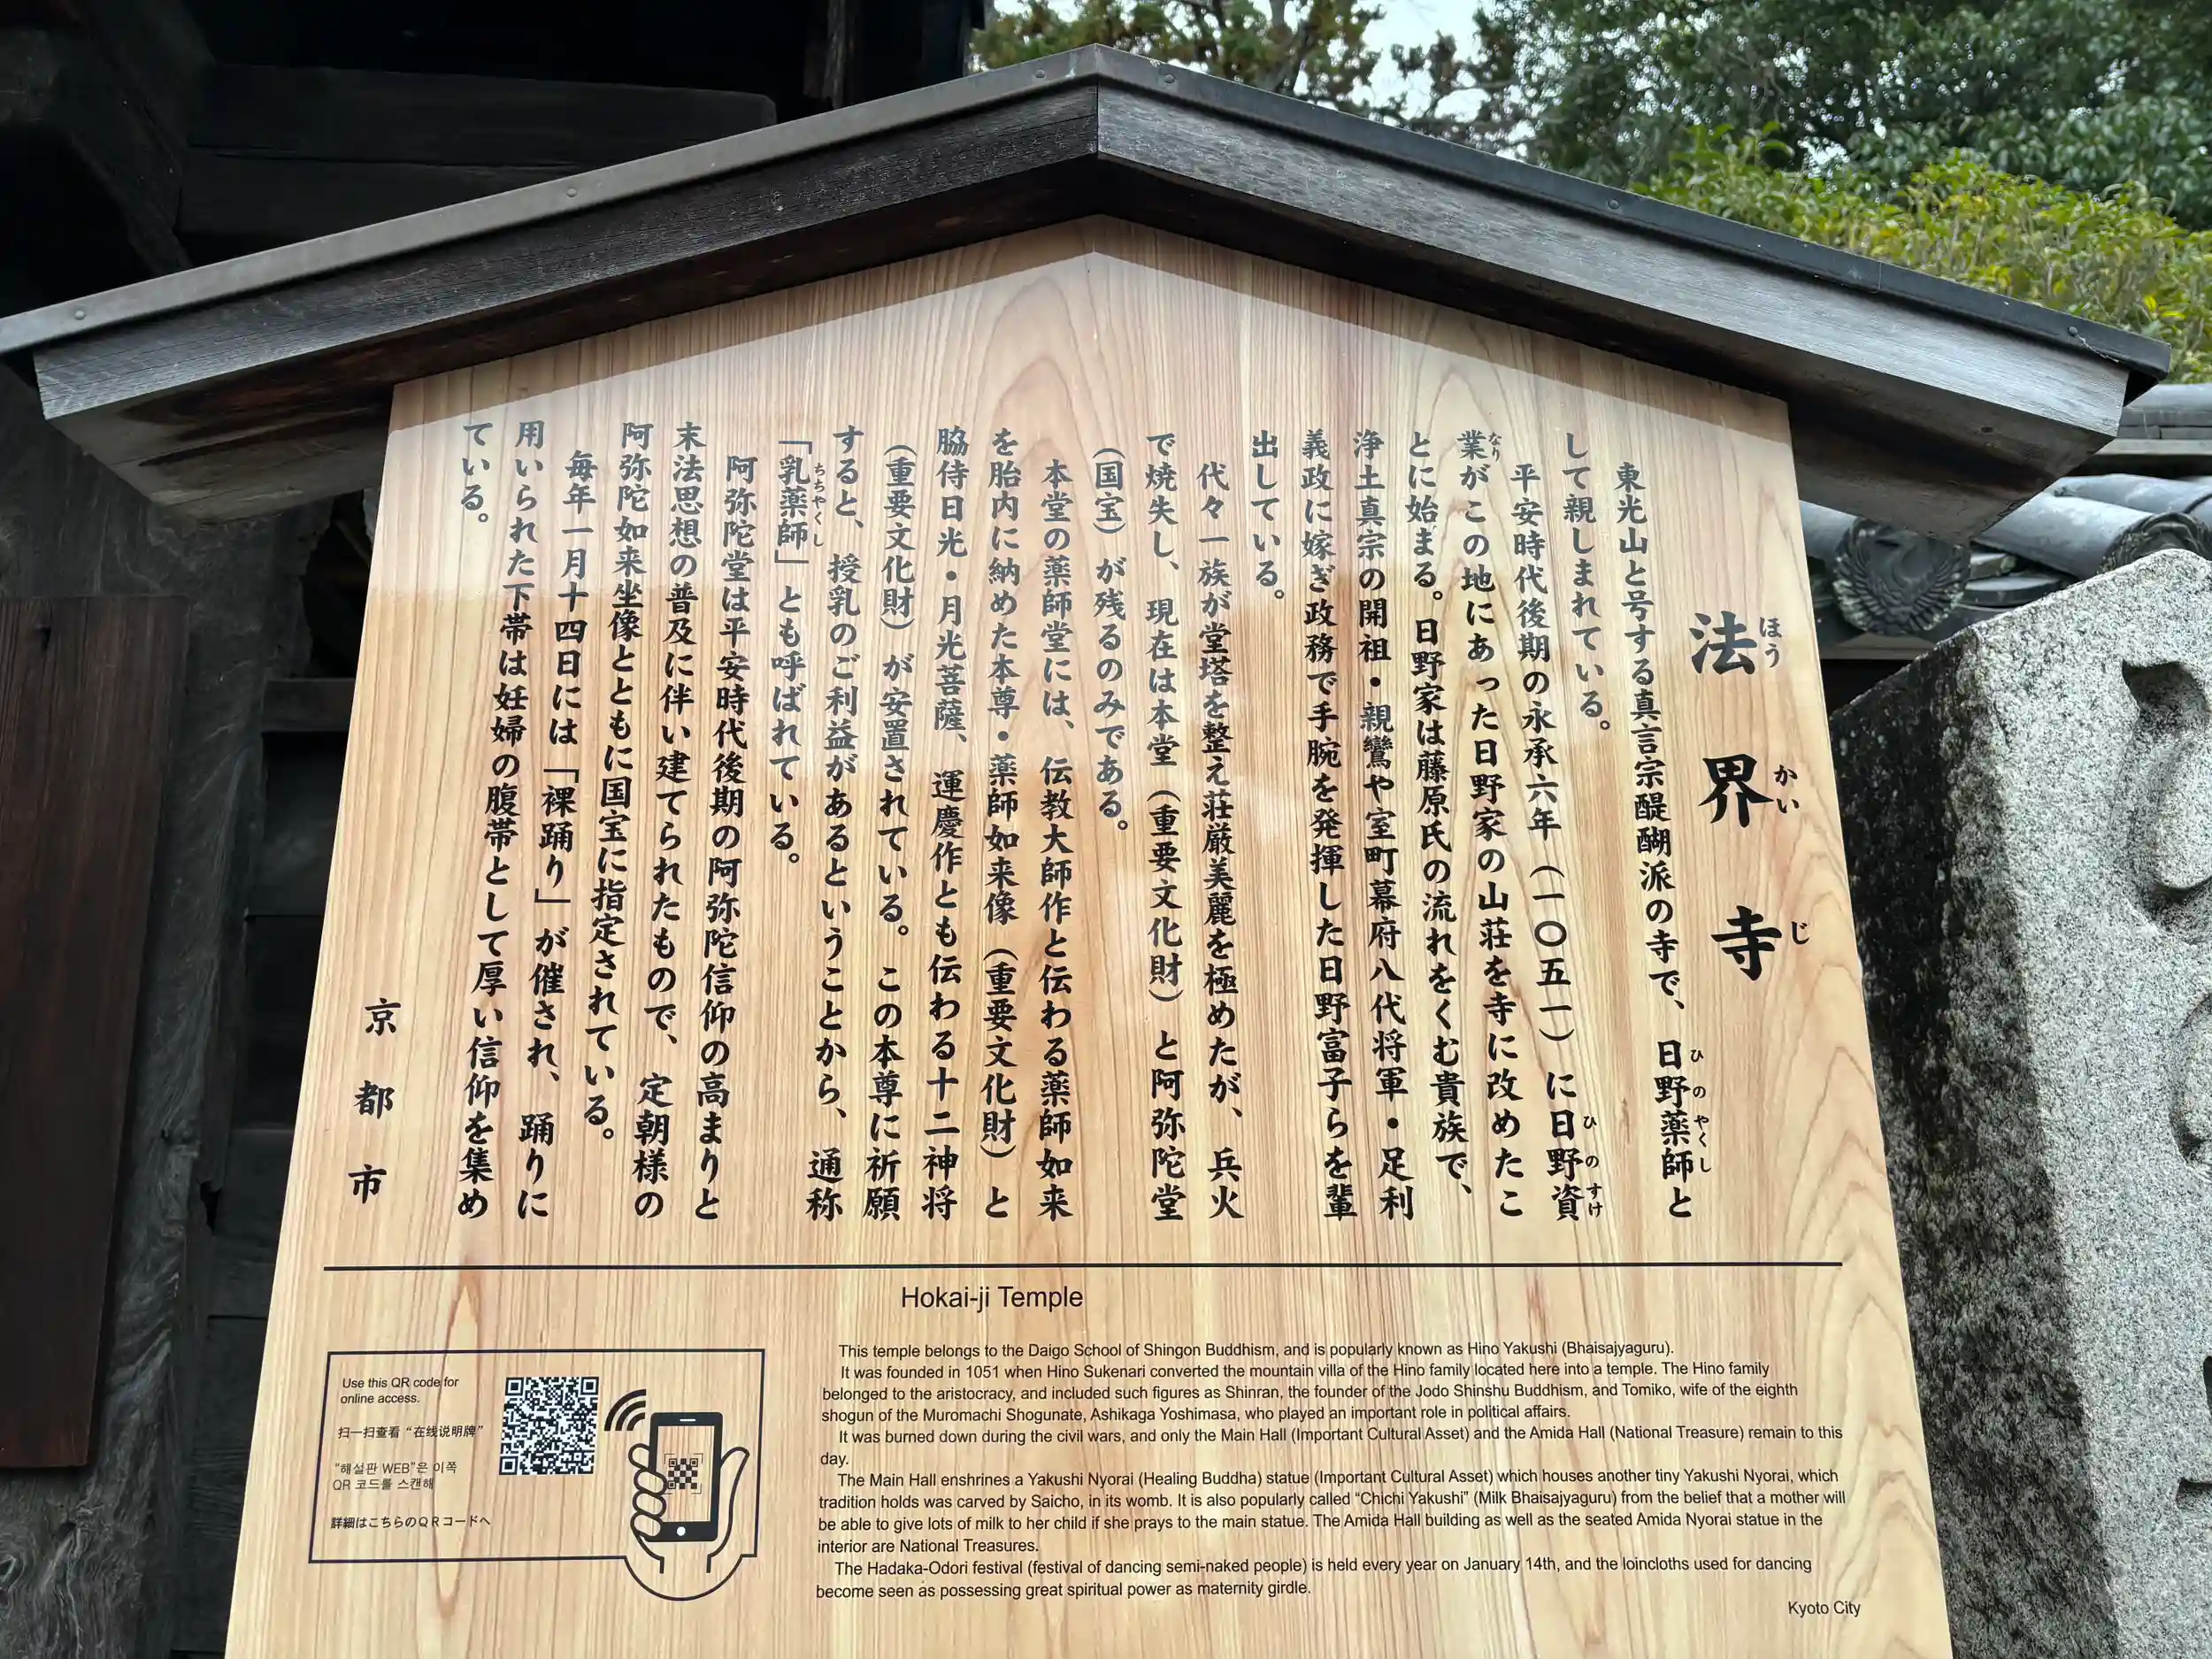 法界寺
ほうかいじ
東光山と号する真言宗醍醐派の寺で、日野薬師と
ひのやくし
して親しまれている。
平安時代後期の永承六年（一〇五一）に日野資
ひのすけ
業がこの地にあった日野家の山荘を寺に改めたこ
なり
とに始まる。日野家は藤原氏の流れをくむ貴族で、
浄土真宗の開祖・親鸞や室町幕府八代将軍・足利
義政に嫁ぎ政務で手腕を発揮した日野富子らを輩
出している。
代々一族が堂塔を整え荘厳美麗を極めたが、兵火
で焼失し、現在は本堂（重要文化財）と阿弥陀堂
（国宝）が残るのみである。
本堂の薬師堂には、伝教大師作と伝わる薬師如来
を胎内に納めた本尊・薬師如来像（重要文化財）と
脇侍日光・月光菩薩、運慶作とも伝わる十二神将
（重要文化財）が安置されている。この本尊に祈願
すると、授乳のご利益があるということから、通称
「乳薬師」とも呼ばれている。
ちちやくし
阿弥陀堂は平安時代後期の阿弥陀信仰の高まりと
末法思想の普及に伴い建てられたもので、定朝様の
阿弥陀如来坐像とともに国宝に指定されている。
毎年一月十四日には「裸踊り」が催され、踊りに
用いられた下帯は妊婦の腹帯として厚い信仰を集め
ている。
京都市
Hokai-ji Temple
Use this QR code for
online access.
扫一扫查看“在线说明牌”
“해설판 WEB”은 이쪽
QR 코드를 스캔해
詳細はこちらのQRコードへ
This temple belongs to the Daigo School of Shingon Buddhism, and is popularly known as Hino Yakushi (Bhaisajyaguru).
It was founded in 1051 when Hino Sukenari converted the mountain villa of the Hino family located here into a temple. The Hino family
belonged to the aristocracy, and included such figures as Shinran, the founder of the Jodo Shinshu Buddhism, and Tomiko, wife of the eighth
shogun of the Muromachi Shogunate, Ashikaga Yoshimasa, who played an important role in political affairs.
It was burned down during the civil wars, and only the Main Hall (Important Cultural Asset) and the Amida Hall (National Treasure) remain to this
day.
The Main Hall enshrines a Yakushi Nyorai (Healing Buddha) statue (Important Cultural Asset) which houses another tiny Yakushi Nyorai, which
tradition holds was carved by Saicho, in its womb. It is also popularly called “Chichi Yakushi” (Milk Bhaisajyaguru) from the belief that a mother will
be able to give lots of milk to her child if she prays to the main statue. The Amida Hall building as well as the seated Amida Nyorai statue in the
interior are National Treasures.
The Hadaka-Odori festival (festival of dancing semi-naked people) is held every year on January 14th, and the loincloths used for dancing
become seen as possessing great spiritual power as maternity girdle.
Kyoto City